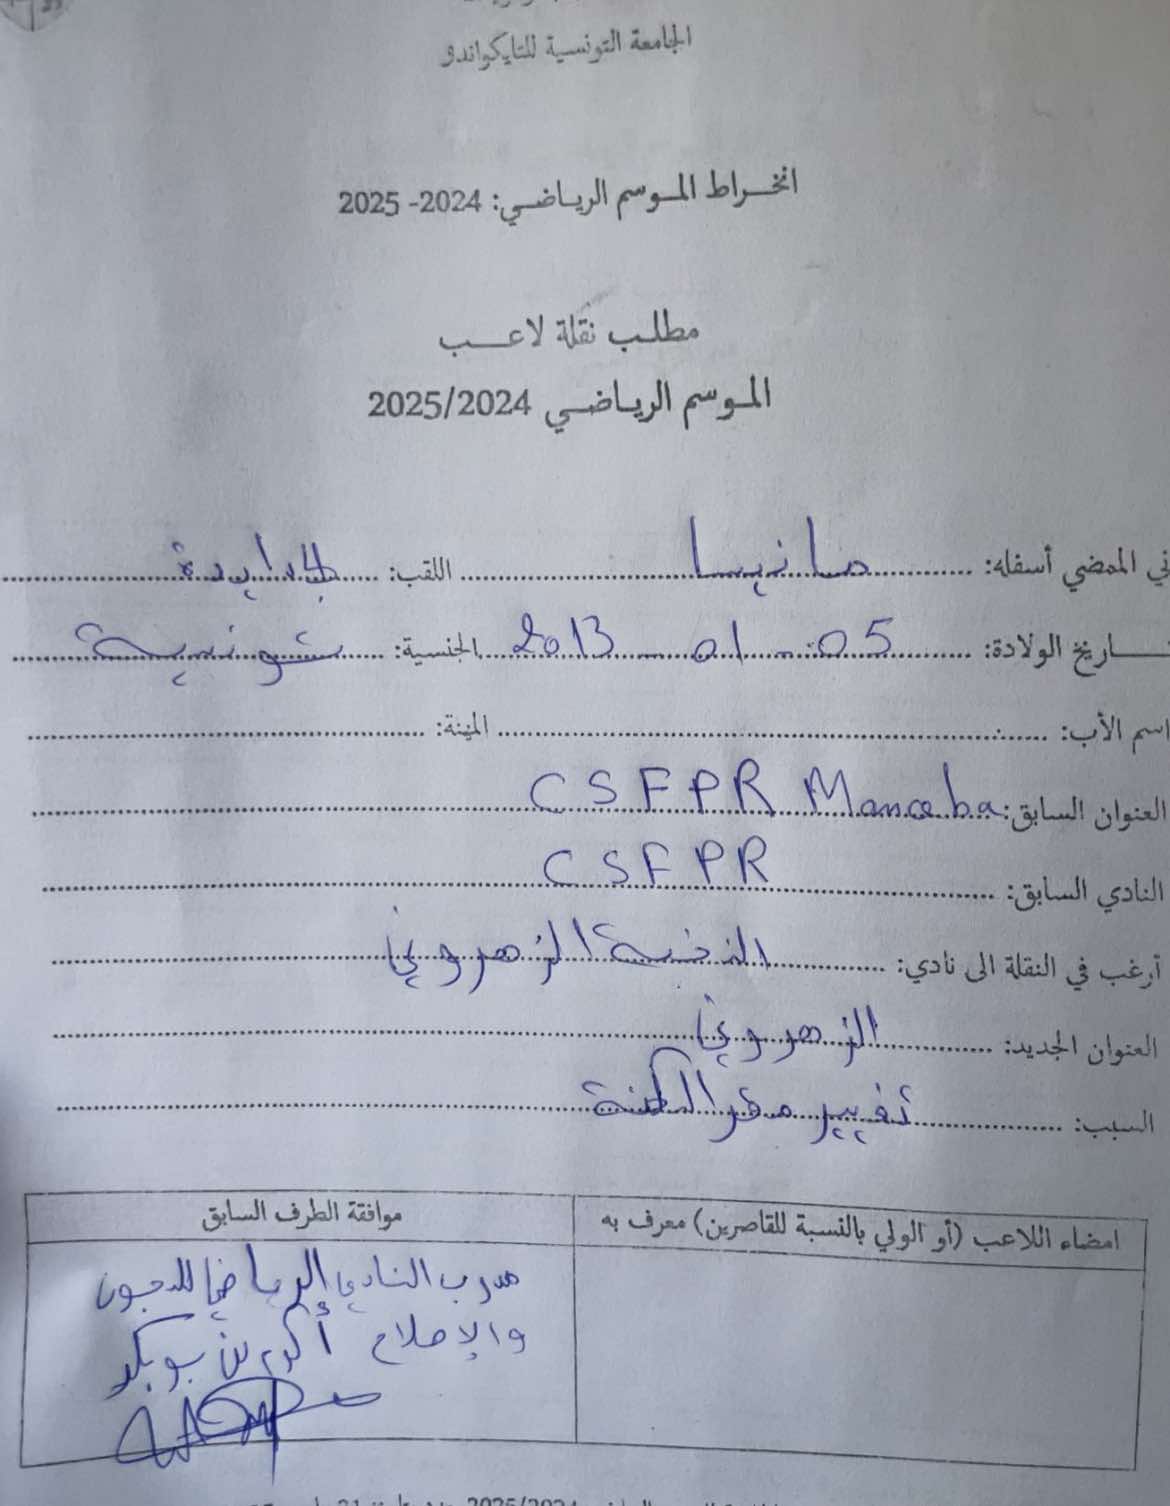 الجامعة التونسية للتايكواندو
انخراط الموسم الرياضي: 2024- 2025
مطلب نقلة لاعب
الموسم الرياضي 2025/2024
ني الممضي أسفله: مانيسا اللقب:
تاريخ الولادة: 05 - 01 - 2013 الجنسية: تونسية
اسم الأب: المهنة:
العنوان السابق: CSFPR Manouba
النادي السابق: CSFPR
أرغب في النقلة الى نادي: النخبة الزهروني
العنوان الجديد: الزهروني
السبب: تغيير مقر السكنة
امضاء اللاعب (أو الولي بالنسبة للقاصرين) معرف به
موافقة الطرف السابق
مدرب النادي الرياضي للسجون
والإصلاح أكرم بن بوبكر